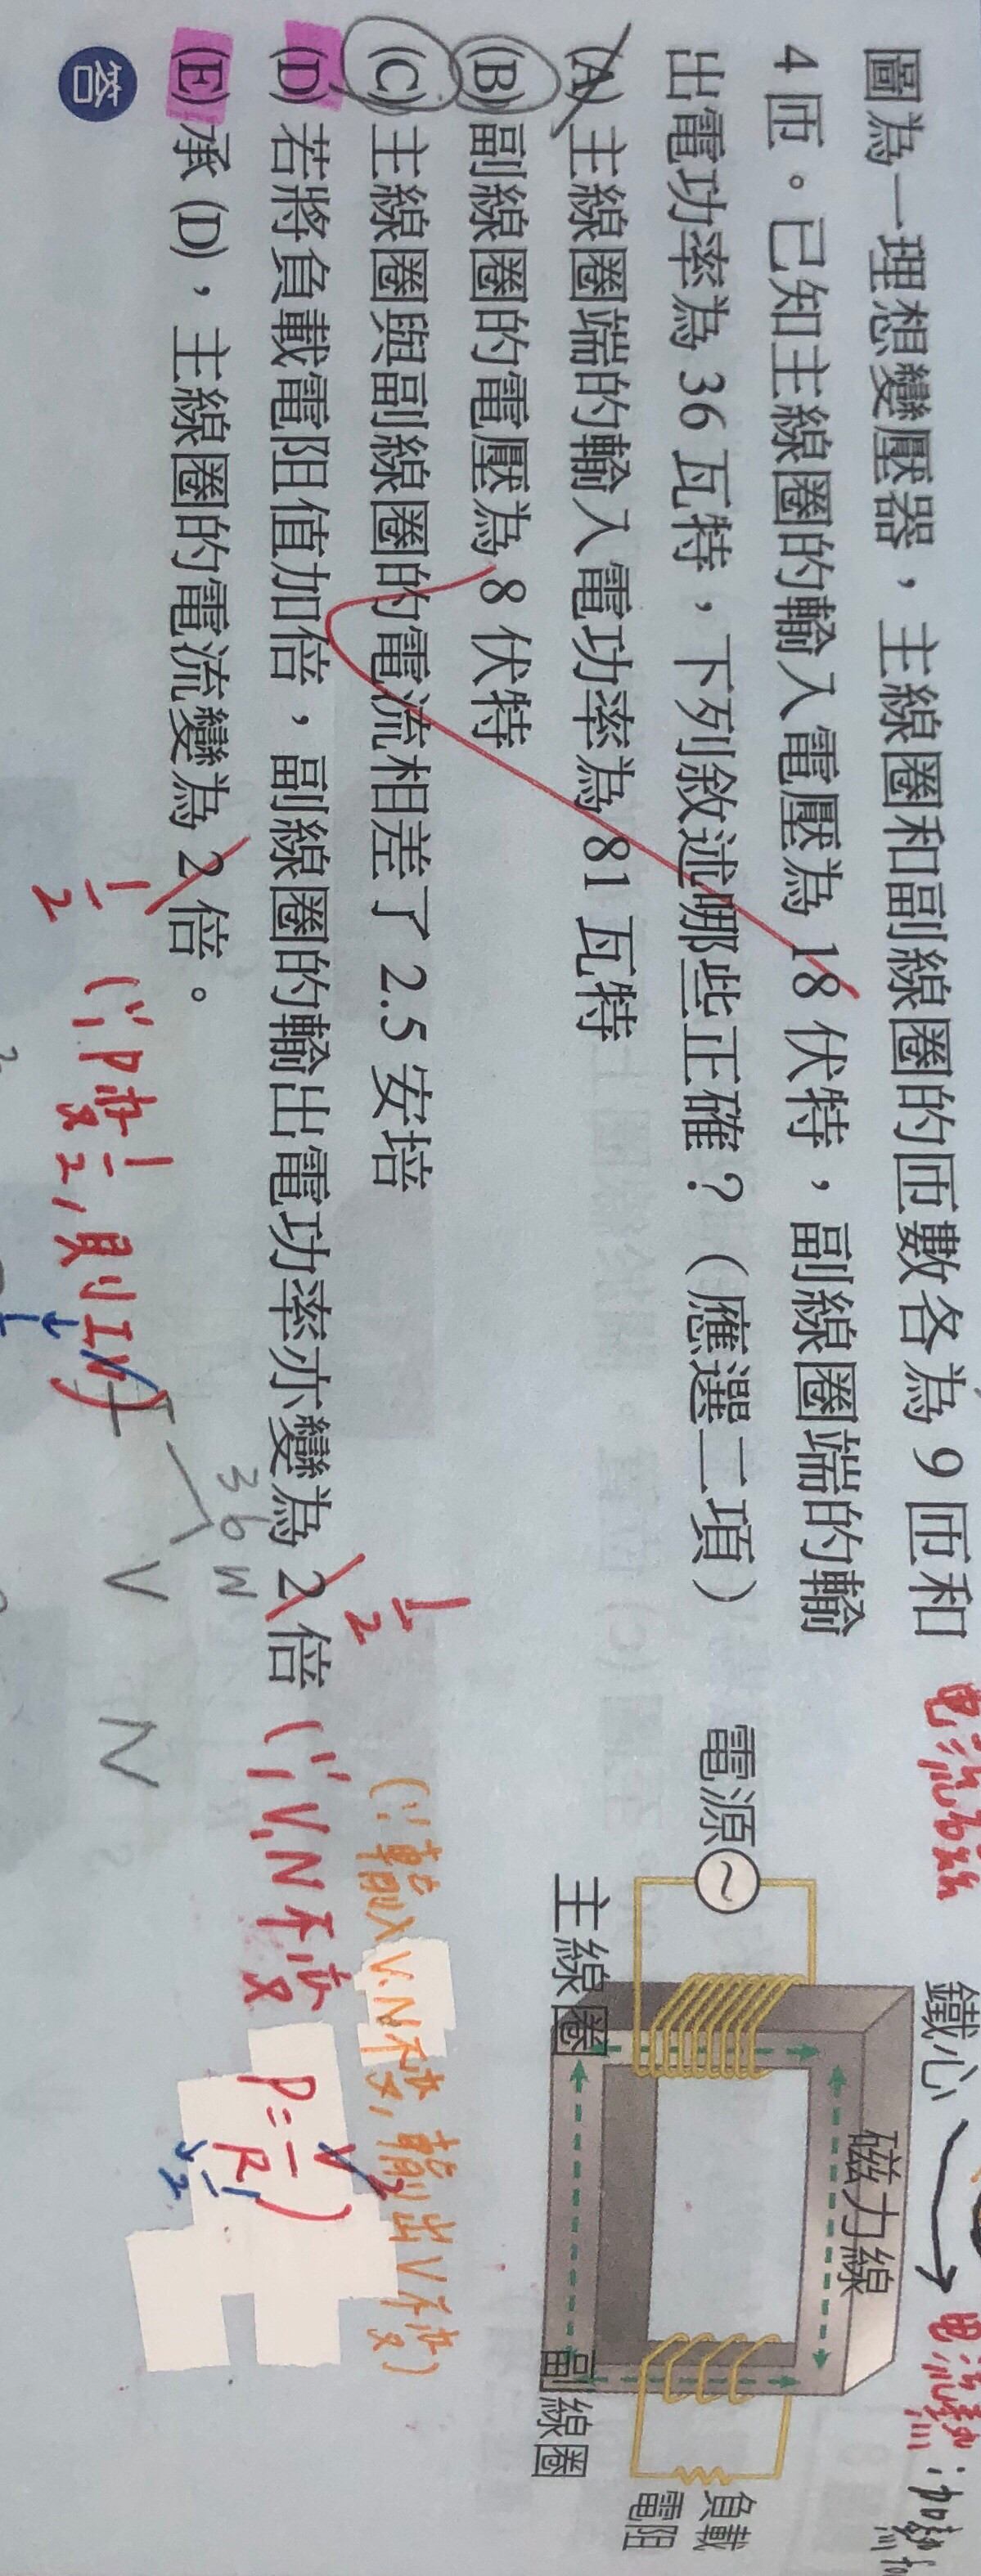 圖為一理想變壓器，主線圈和副線圈的匝數各為 9 匝和
4 匝。已知主線圈的輸入電壓為 18 伏特，副線圈端的輸
出電功率為 36 瓦特，下列敘述哪些正確？（應選二項）
(A) 主線圈端的輸入電功率為 81 瓦特
(B) 副線圈的電壓為 8 伏特
(C) 主線圈與副線圈的電流相差了 2.5 安培
(D) 若將負載電阻值加倍，副線圈的輸出電功率亦變為 2 倍
(E) 承 (D)，主線圈的電流變為 2 倍。
答
電源
主線圈
鐵心
磁力線
副線圈
負載
電阻
1/2
(∵V,N不变 P=V²/R)
(∵輸入V.N不变,輸出V不变)
1/2 (∵P变1/2,則I
36W
I V N